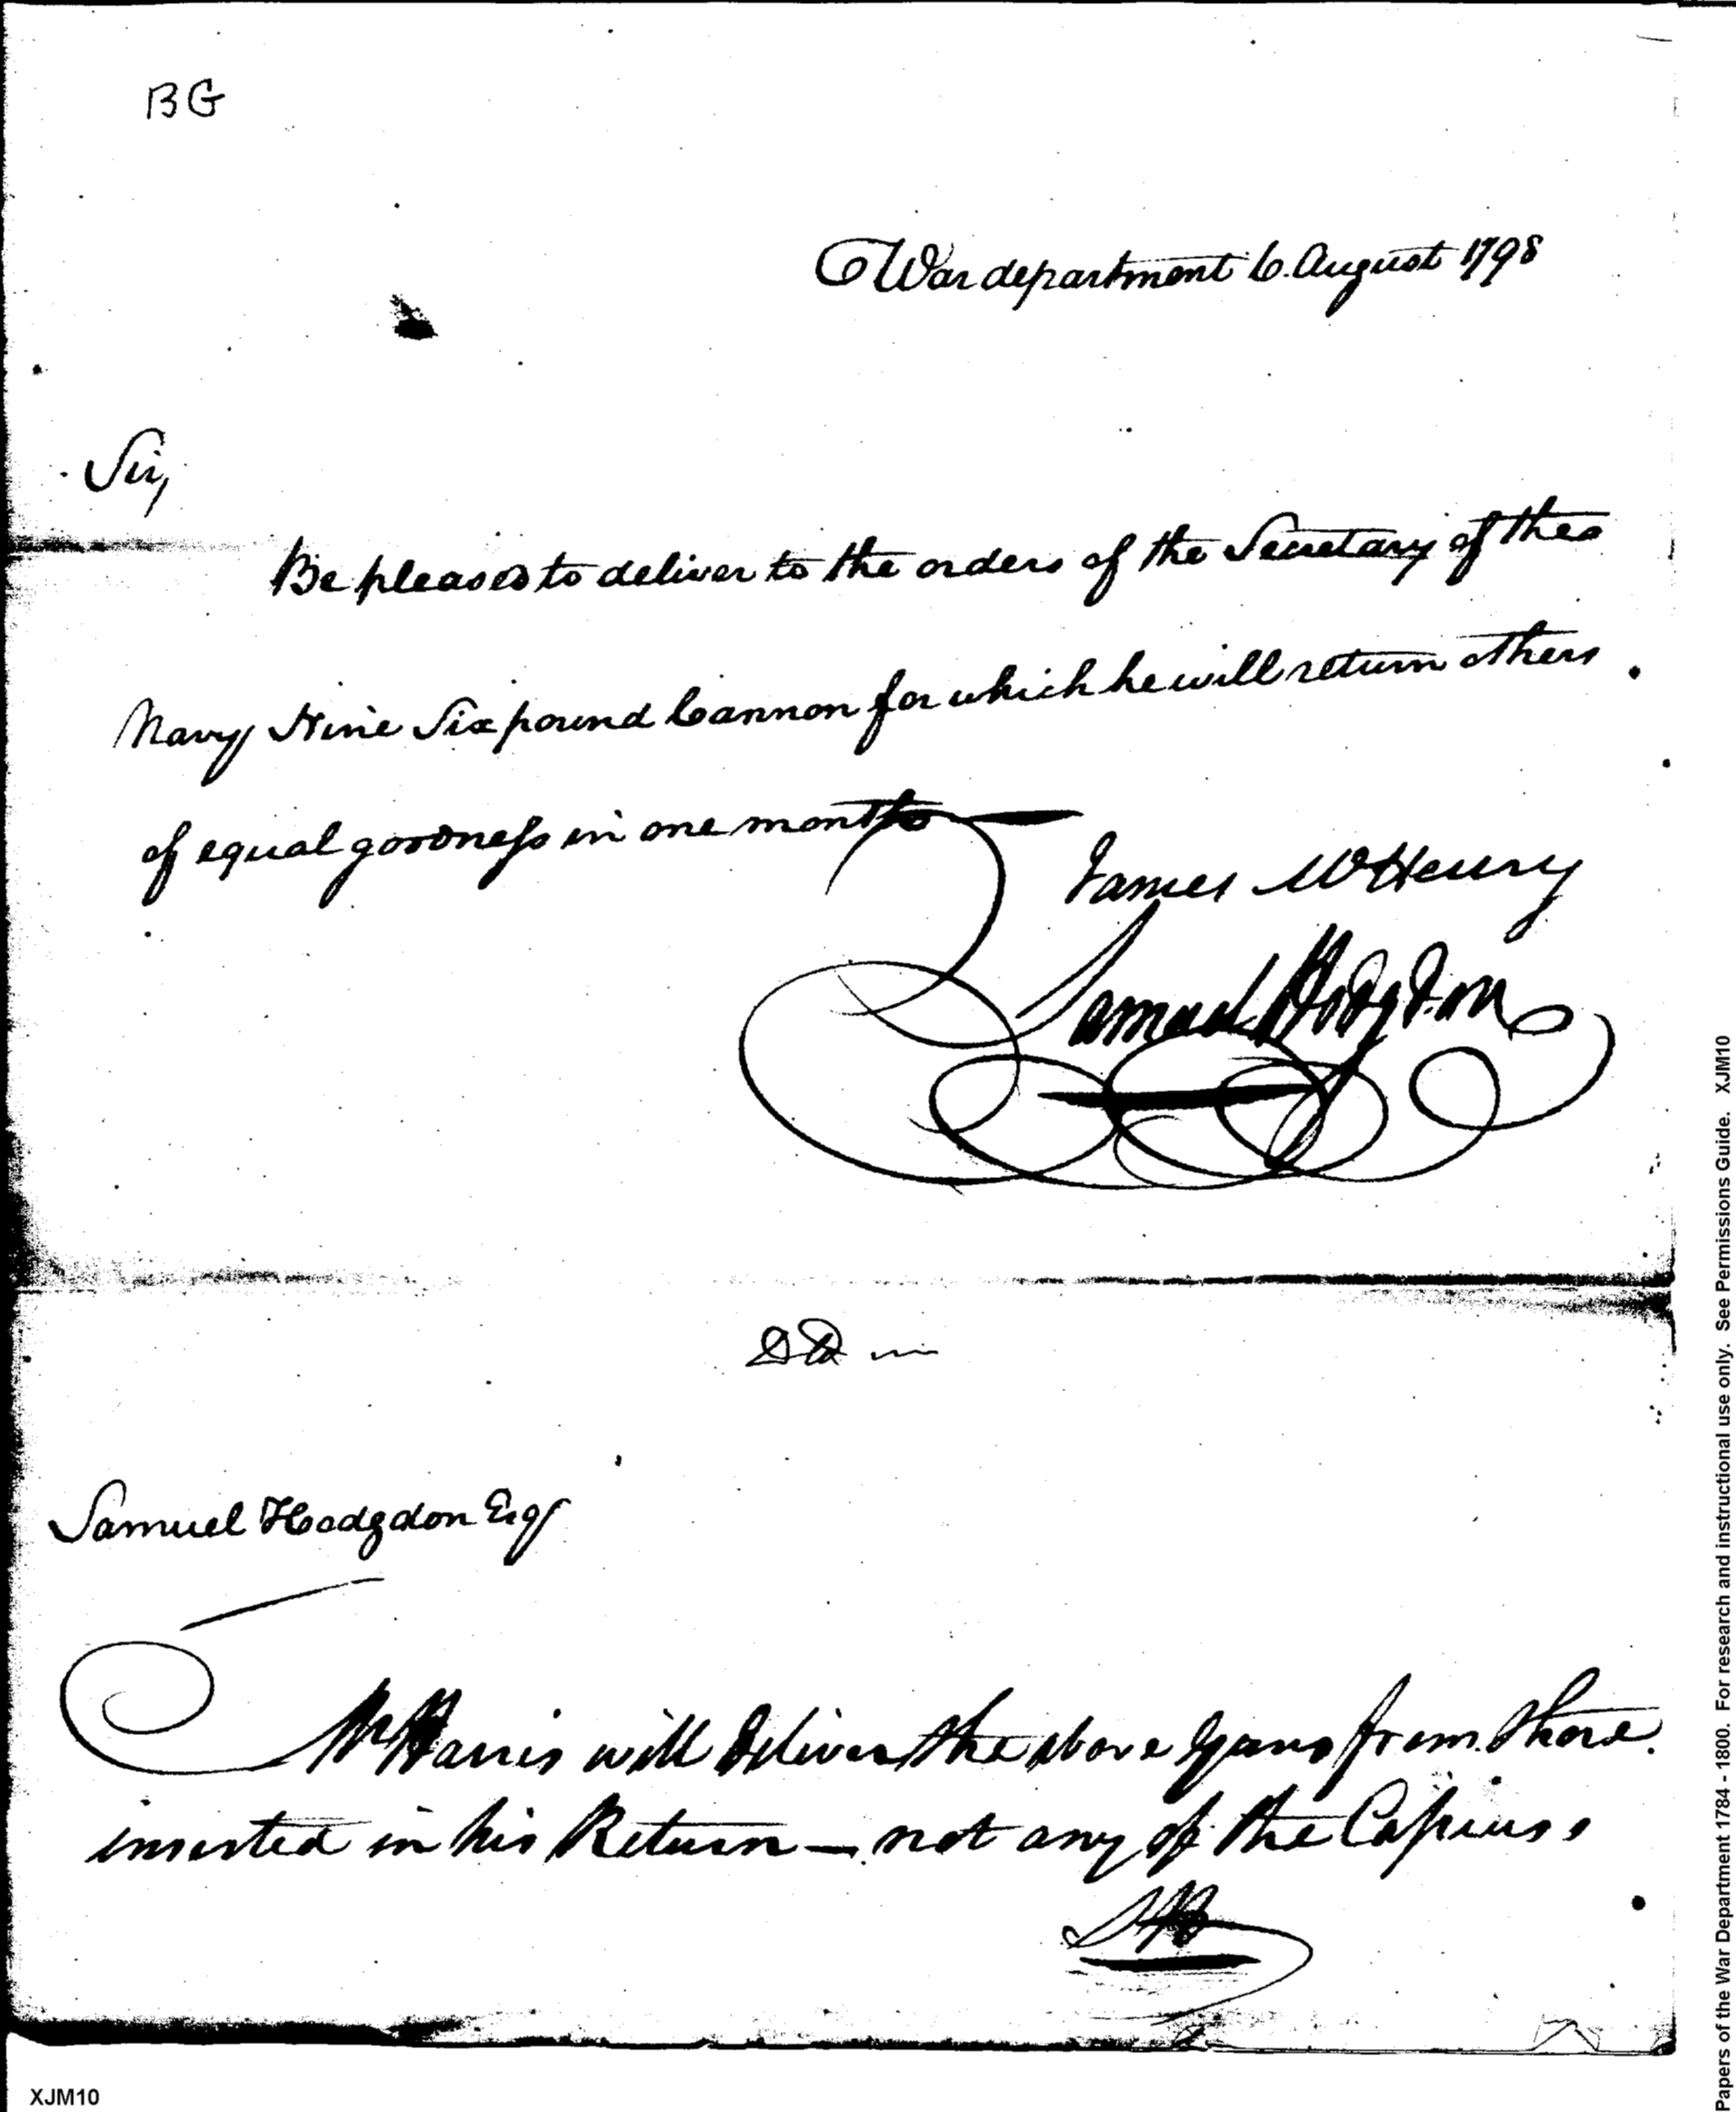 BG
War department 6. August 1798
Sir,
Be pleased to deliver to the orders of the Secretary of the
Navy Nine Six pound Cannon for which he will return others
of equal goodness in one month
James McHenry
Samuel Hodgdon
Samuel Hodgdon Esqr
Mr Harris will deliver the above Guns from those
inserted in his Return — not any of the
SH
XJM10
Papers of the War Department 1784 - 1800. For research and instructional use only. See Permissions Guide. XJM10